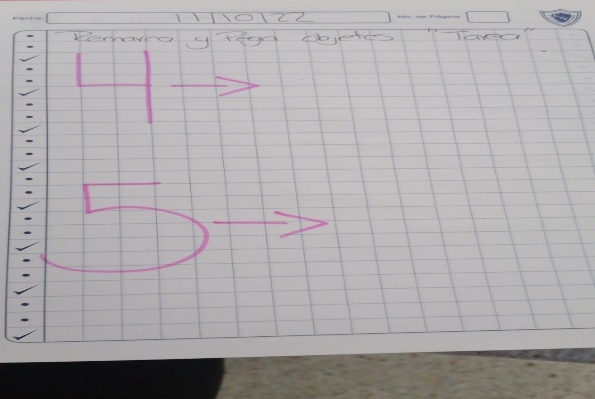 Fecha: 11/10/22 No. de Página
Remarca y Pega objetos "Tarea"
4 →
5 →